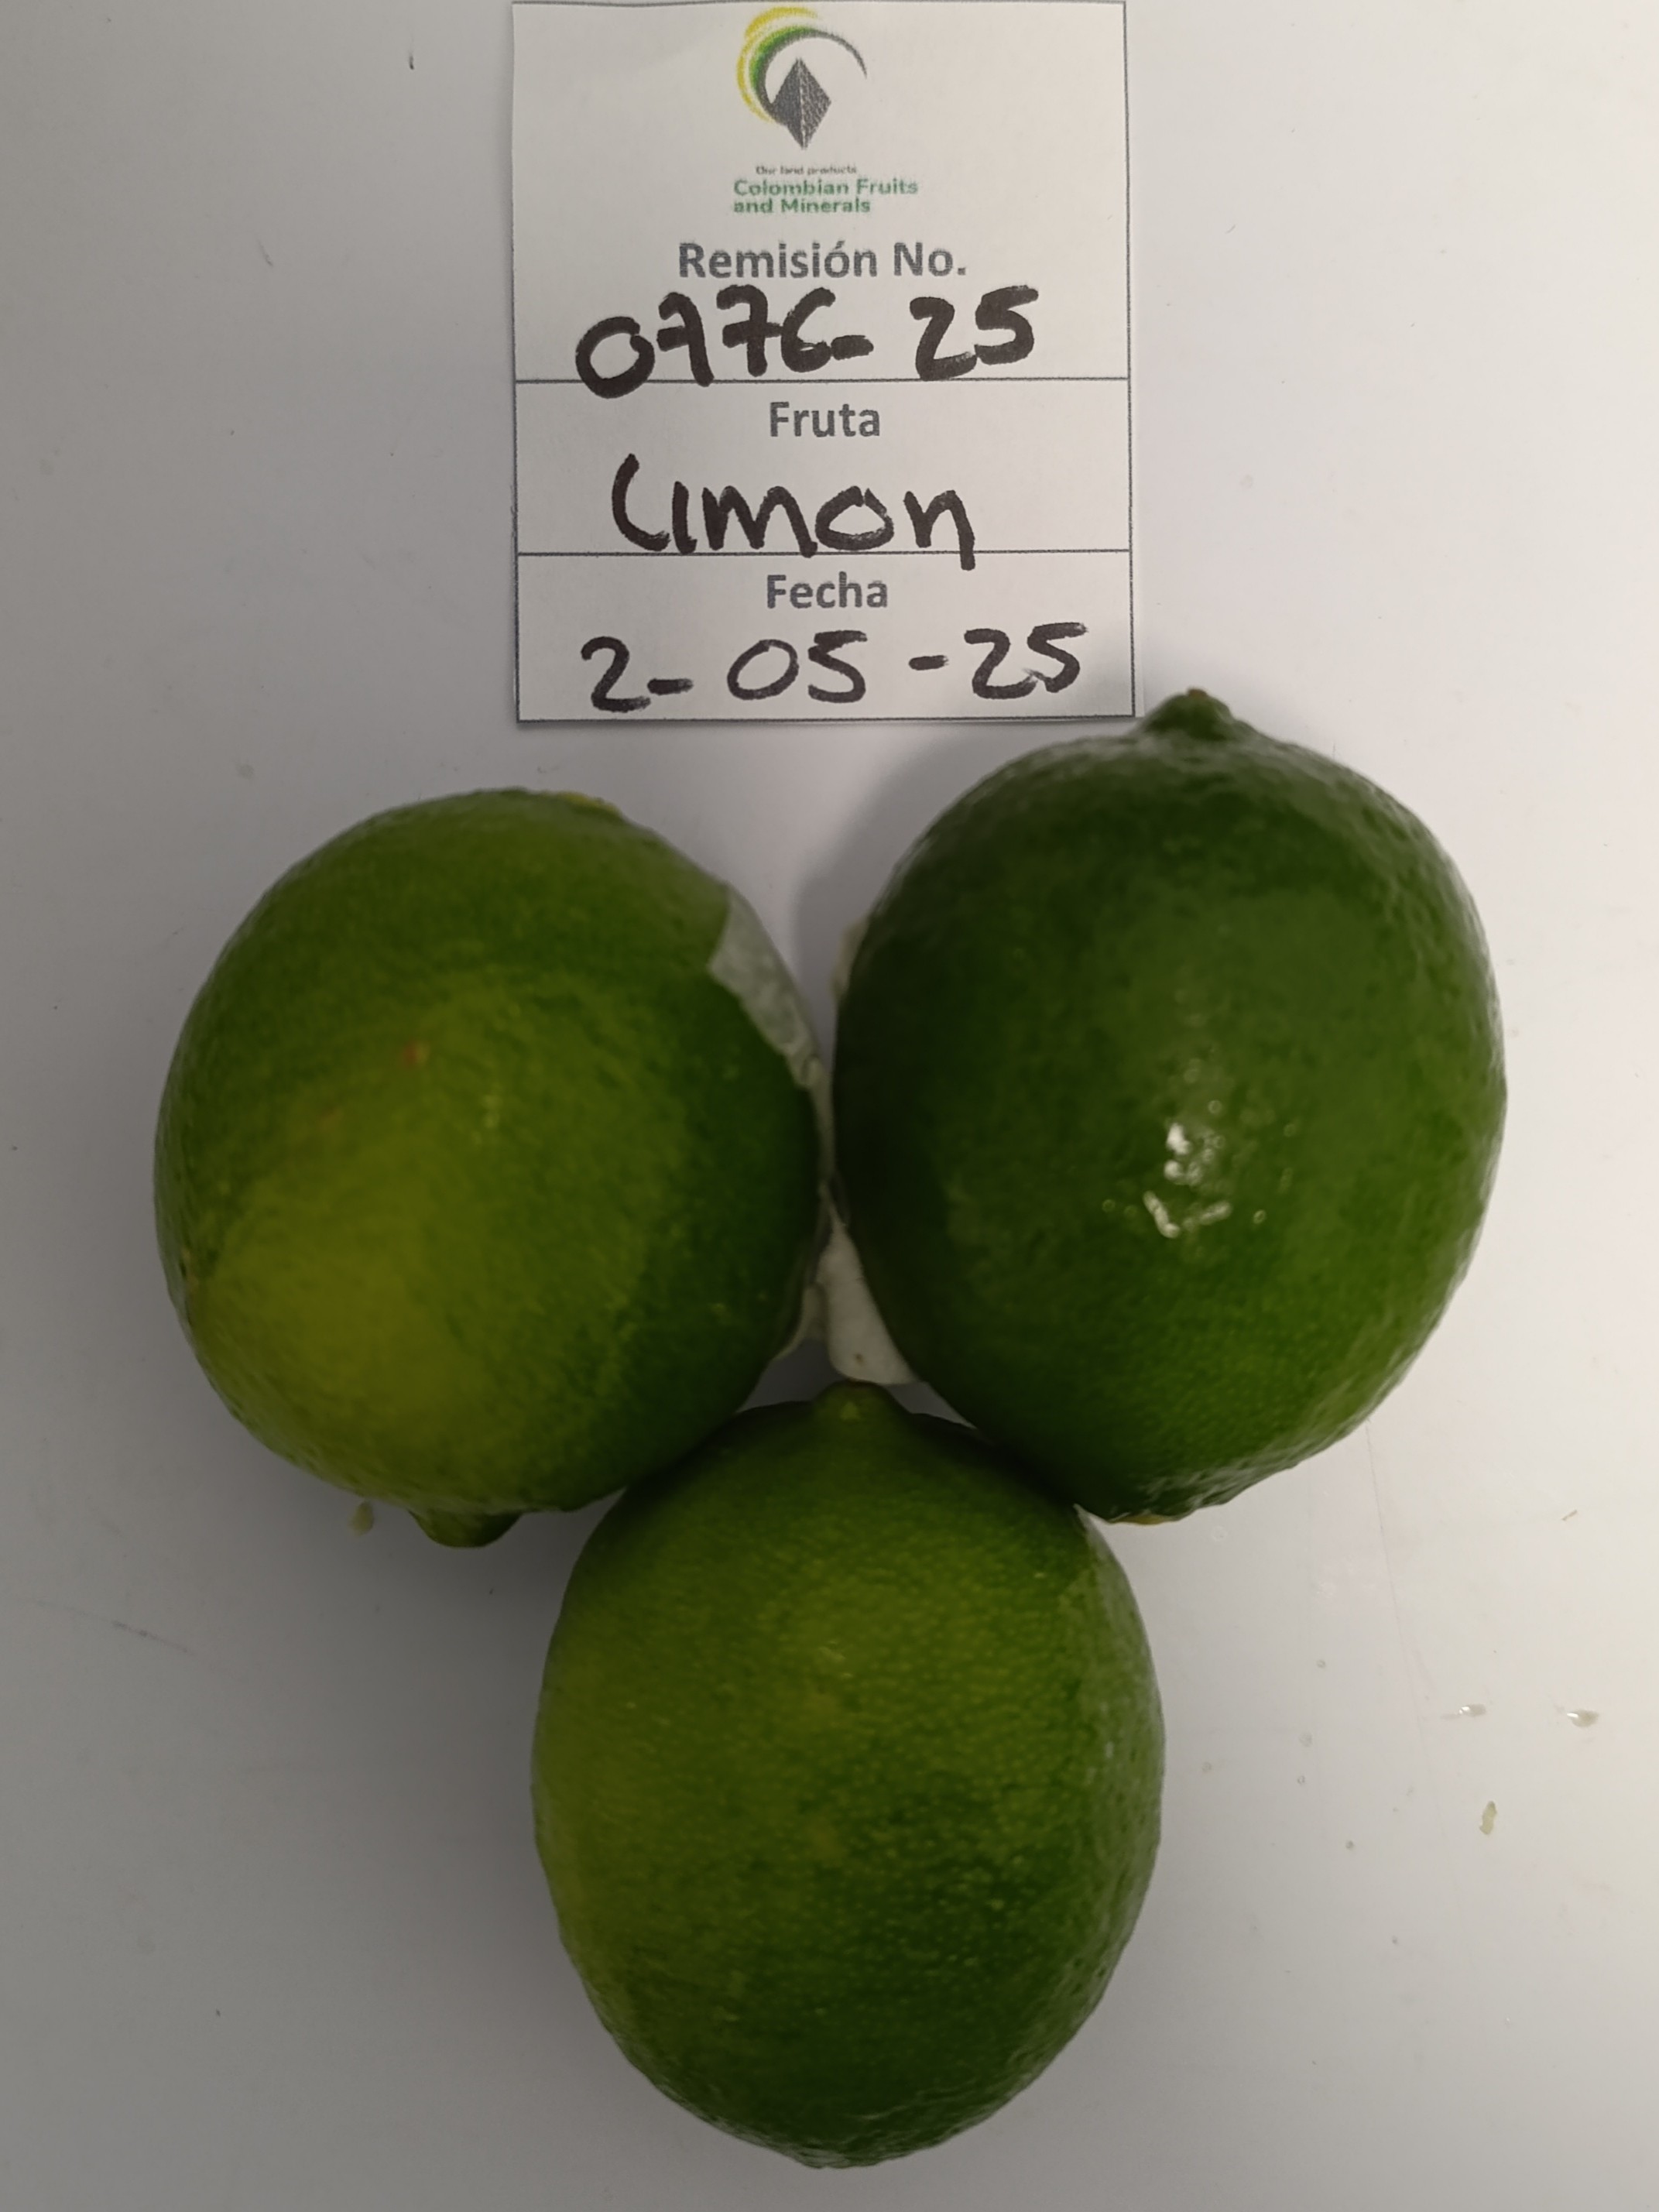 Our land products
Colombian Fruits
and Minerals
Remisión No.
0776-25
Fruta
Limon
Fecha
2-05-25